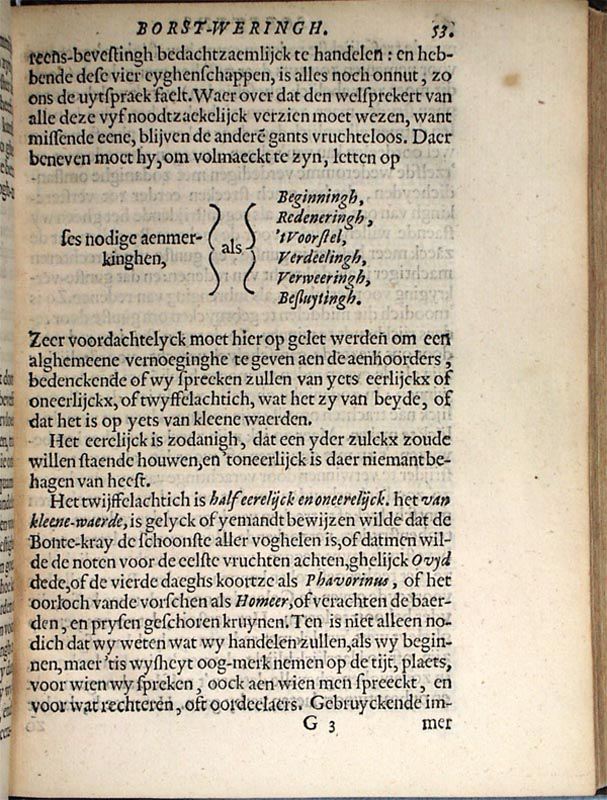 BORST-WERINGH. 53.
reens-bevestingh bedachtzaemlijck te handelen : en heb-
bende dese vier eyghenschappen, is alles noch onnut, zo
ons de uytspraek faelt. Waer over dat den welsprekert van
alle deze vyf noodtzackelijck verzien moet wezen, want
missende eene, blijven de anderẽ gants vruchteloos. Daer
beneven moet hy, om volmaeckt te zyn, letten op
ses nodige aenmer-
kinghen,
als
Beginningh,
Redeneringh,
'tVoorstel,
Verdeelingh,
Verweeringh,
Besluytingh.
Zeer voordachtelyck moet hier op gelet werden om een
alghemeene vernoeginghe te geven aen de aenhoorders ,
bedenckende of wy sprecken zullen van yets eerlijckx of
oneerlijckx, of twyffelachtich, wat het zy van beyde, of
dat het is op yets van kleene waerden.
Het eerelijck is zodanigh, dat een yder zulckx zoude
willen staende houwen, en 'toneerlijck is daer niemant be-
hagen van heeft.
Het twijffelachtich is half eerelijck en oneerelijck. het van
kleene-waerde, is gelyck of yemandt bewijzen wilde dat de
Bonte-kray de schoonste aller voghelen is, of datmen wil-
de de noten voor de eelste vruchten achten, ghelijck Ovyd
dede, of de vierde daeghs koortze als Phavorinus, of het
oorloch vande vorschen als Homeer, of verachten de baer-
den, en prysen geschoren kruynen. Ten is niet alleen no-
dich dat wy weten wat wy handelen zullen, als wy begin-
nen, maer 'tis wysheyt oog-merk nemen op de tijt, plaets,
voor wien wy spreken, oock aen wien men spreeckt, en
voor wat rechteren, oft oordeelaers. Gebruyckende im-
G 3 mer